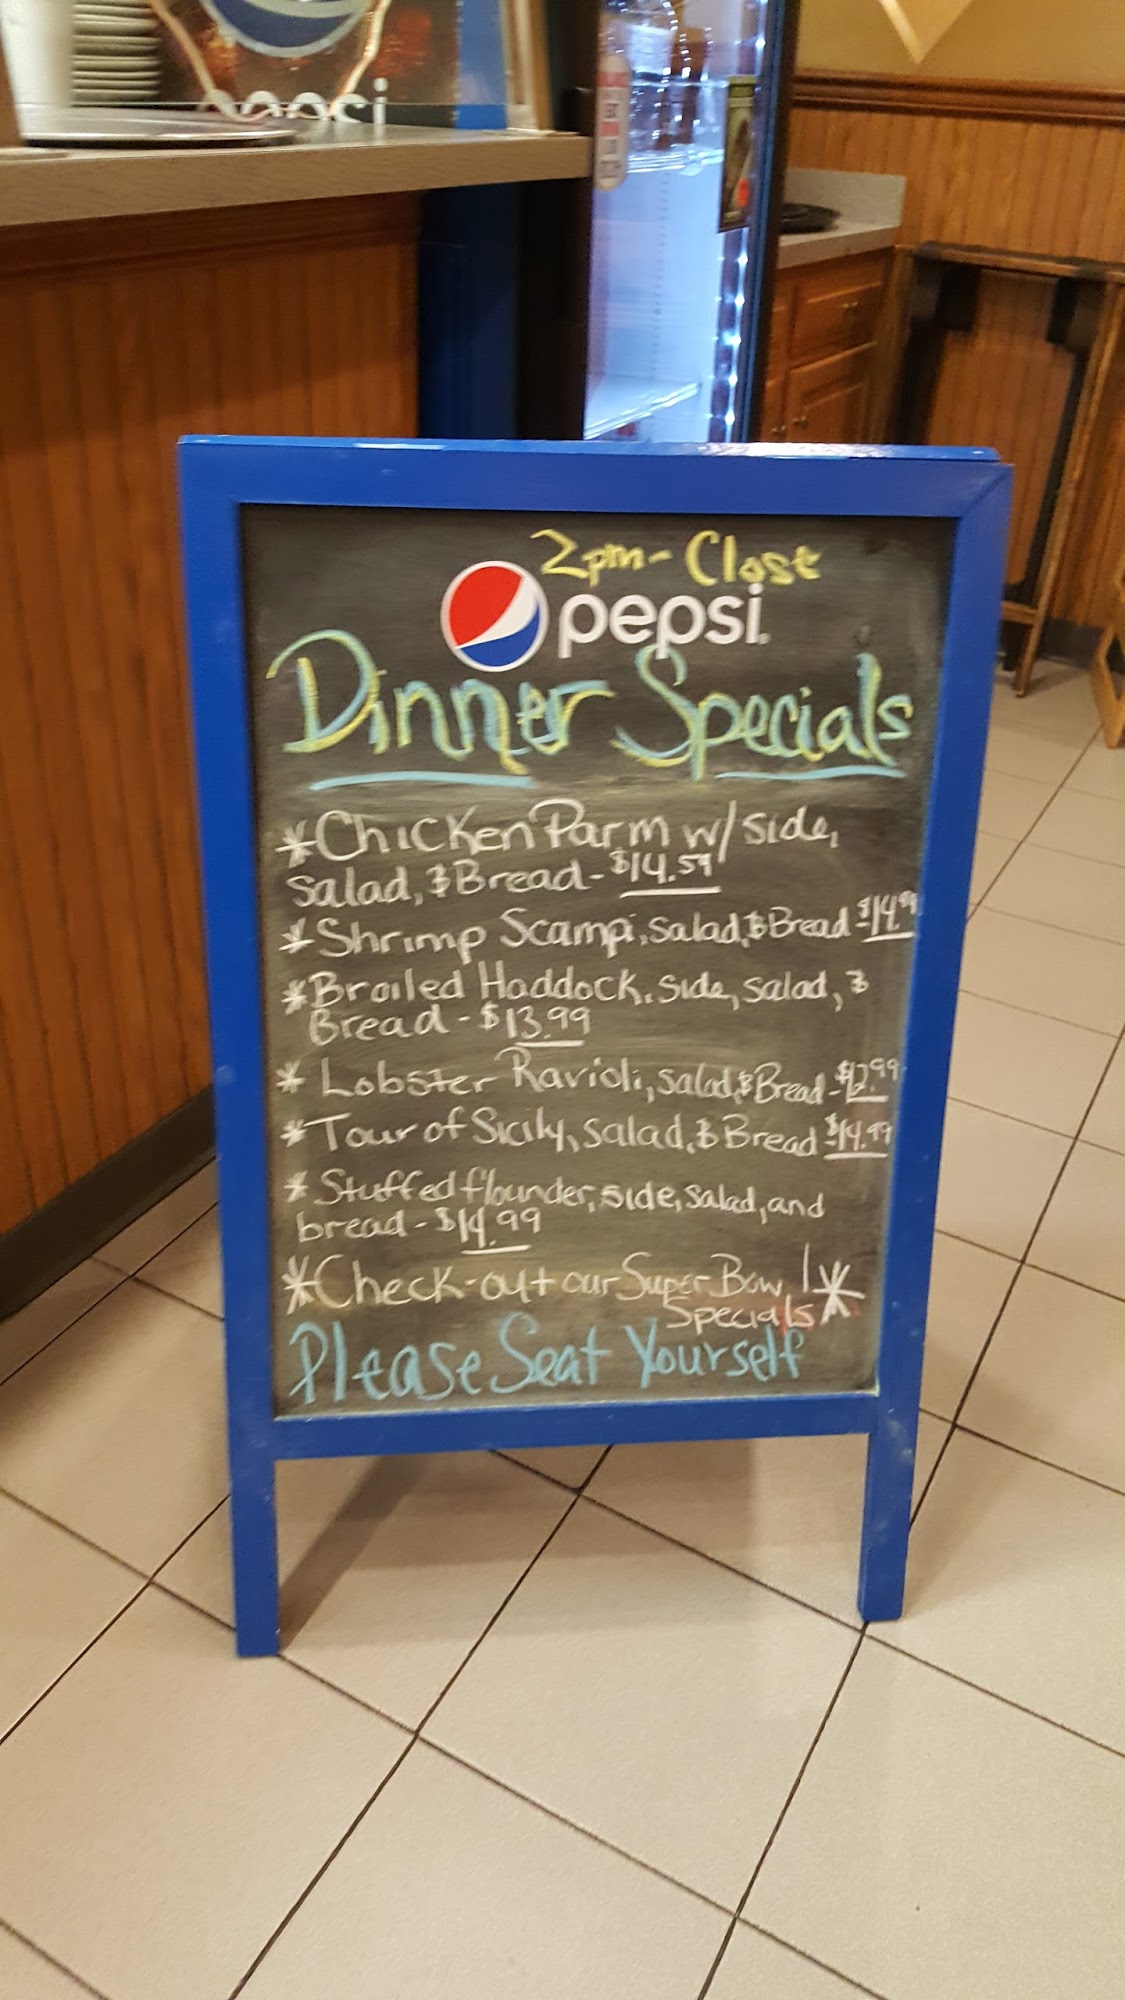 pepsi
2pm - Close
pepsi
Dinner Specials
*Chicken Parm w/ side,
Salad, & Bread - $14.59
*Shrimp Scampi, Salad, & Bread - $14.99
*Broiled Haddock, side, salad, &
Bread - $13.99
*Lobster Ravioli, salad, & Bread - $12.99
*Tour of Sicily, Salad, & Bread - $14.99
*Stuffed flounder, side, Salad, and
bread - $14.99
*Check-out our Super Bowl
Specials*
Please Seat Yourself